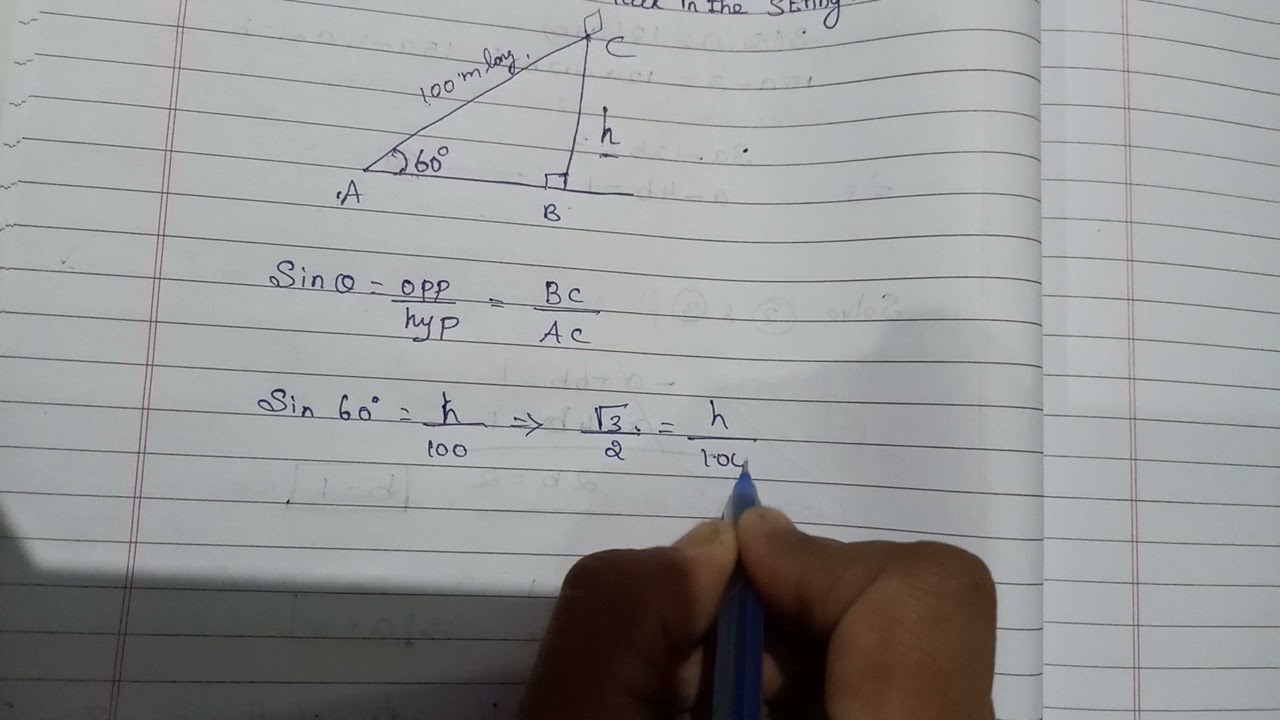 in the String
C
100 m long.
h
60°
A
B
Sin θ = opp/hyp = BC/AC
Sin 60° = h/100 ⇒ √3/2 = h/100